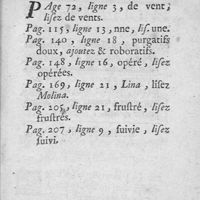 PAge 72, ligne 3, de vent;
lisez de vents.
Pag. 115, ligne 13, nne, lis. une.
Pag. 140, ligne 18, purgatifs
doux, ajoutez & roboratifs.
Pag. 148, ligne 16, opéré, lisez
opérées.
Pag. 169, ligne 21, Lina, lisez
Molina.
Pag. 205, ligne 21, frustré, lisez
frustrés.
Pag. 207, ligne 9, suivie, lisez
suivi.